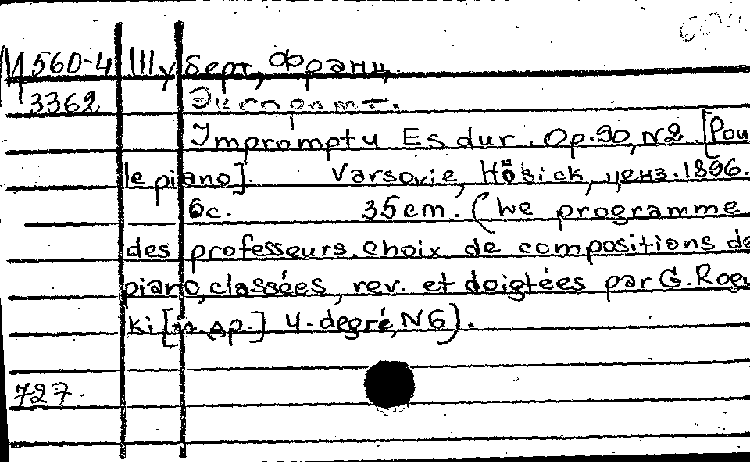 М 560-4 Шуберт, Франц.
3362 Экспромт.
Impromptu Es dur. Op.90, N2 [Pou
le piano]. Varsovie, Hösick, ценз.1896.
6с. 35em. (We programme
des professeurs. Choix de compositions de
piano, classées, rev. et doigtées par G. Rog
ki [и др.] 4-degré, N6).
727